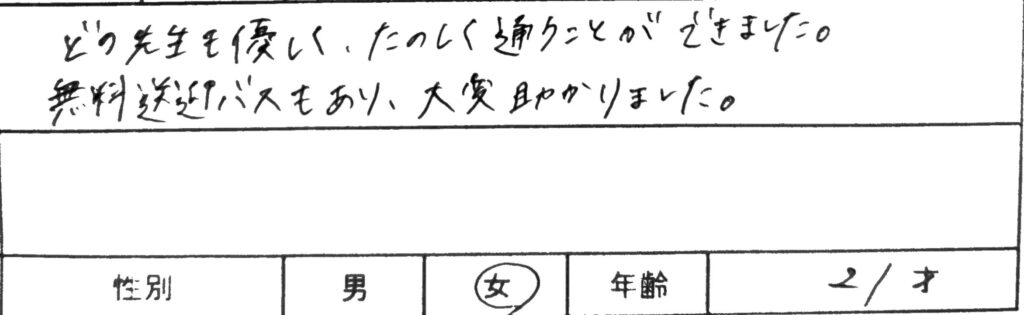 どの先生も優しく、たのしく通うことができました。
無料送迎バスもあり、大変助かりました。
性別 男 女 年齢 21才